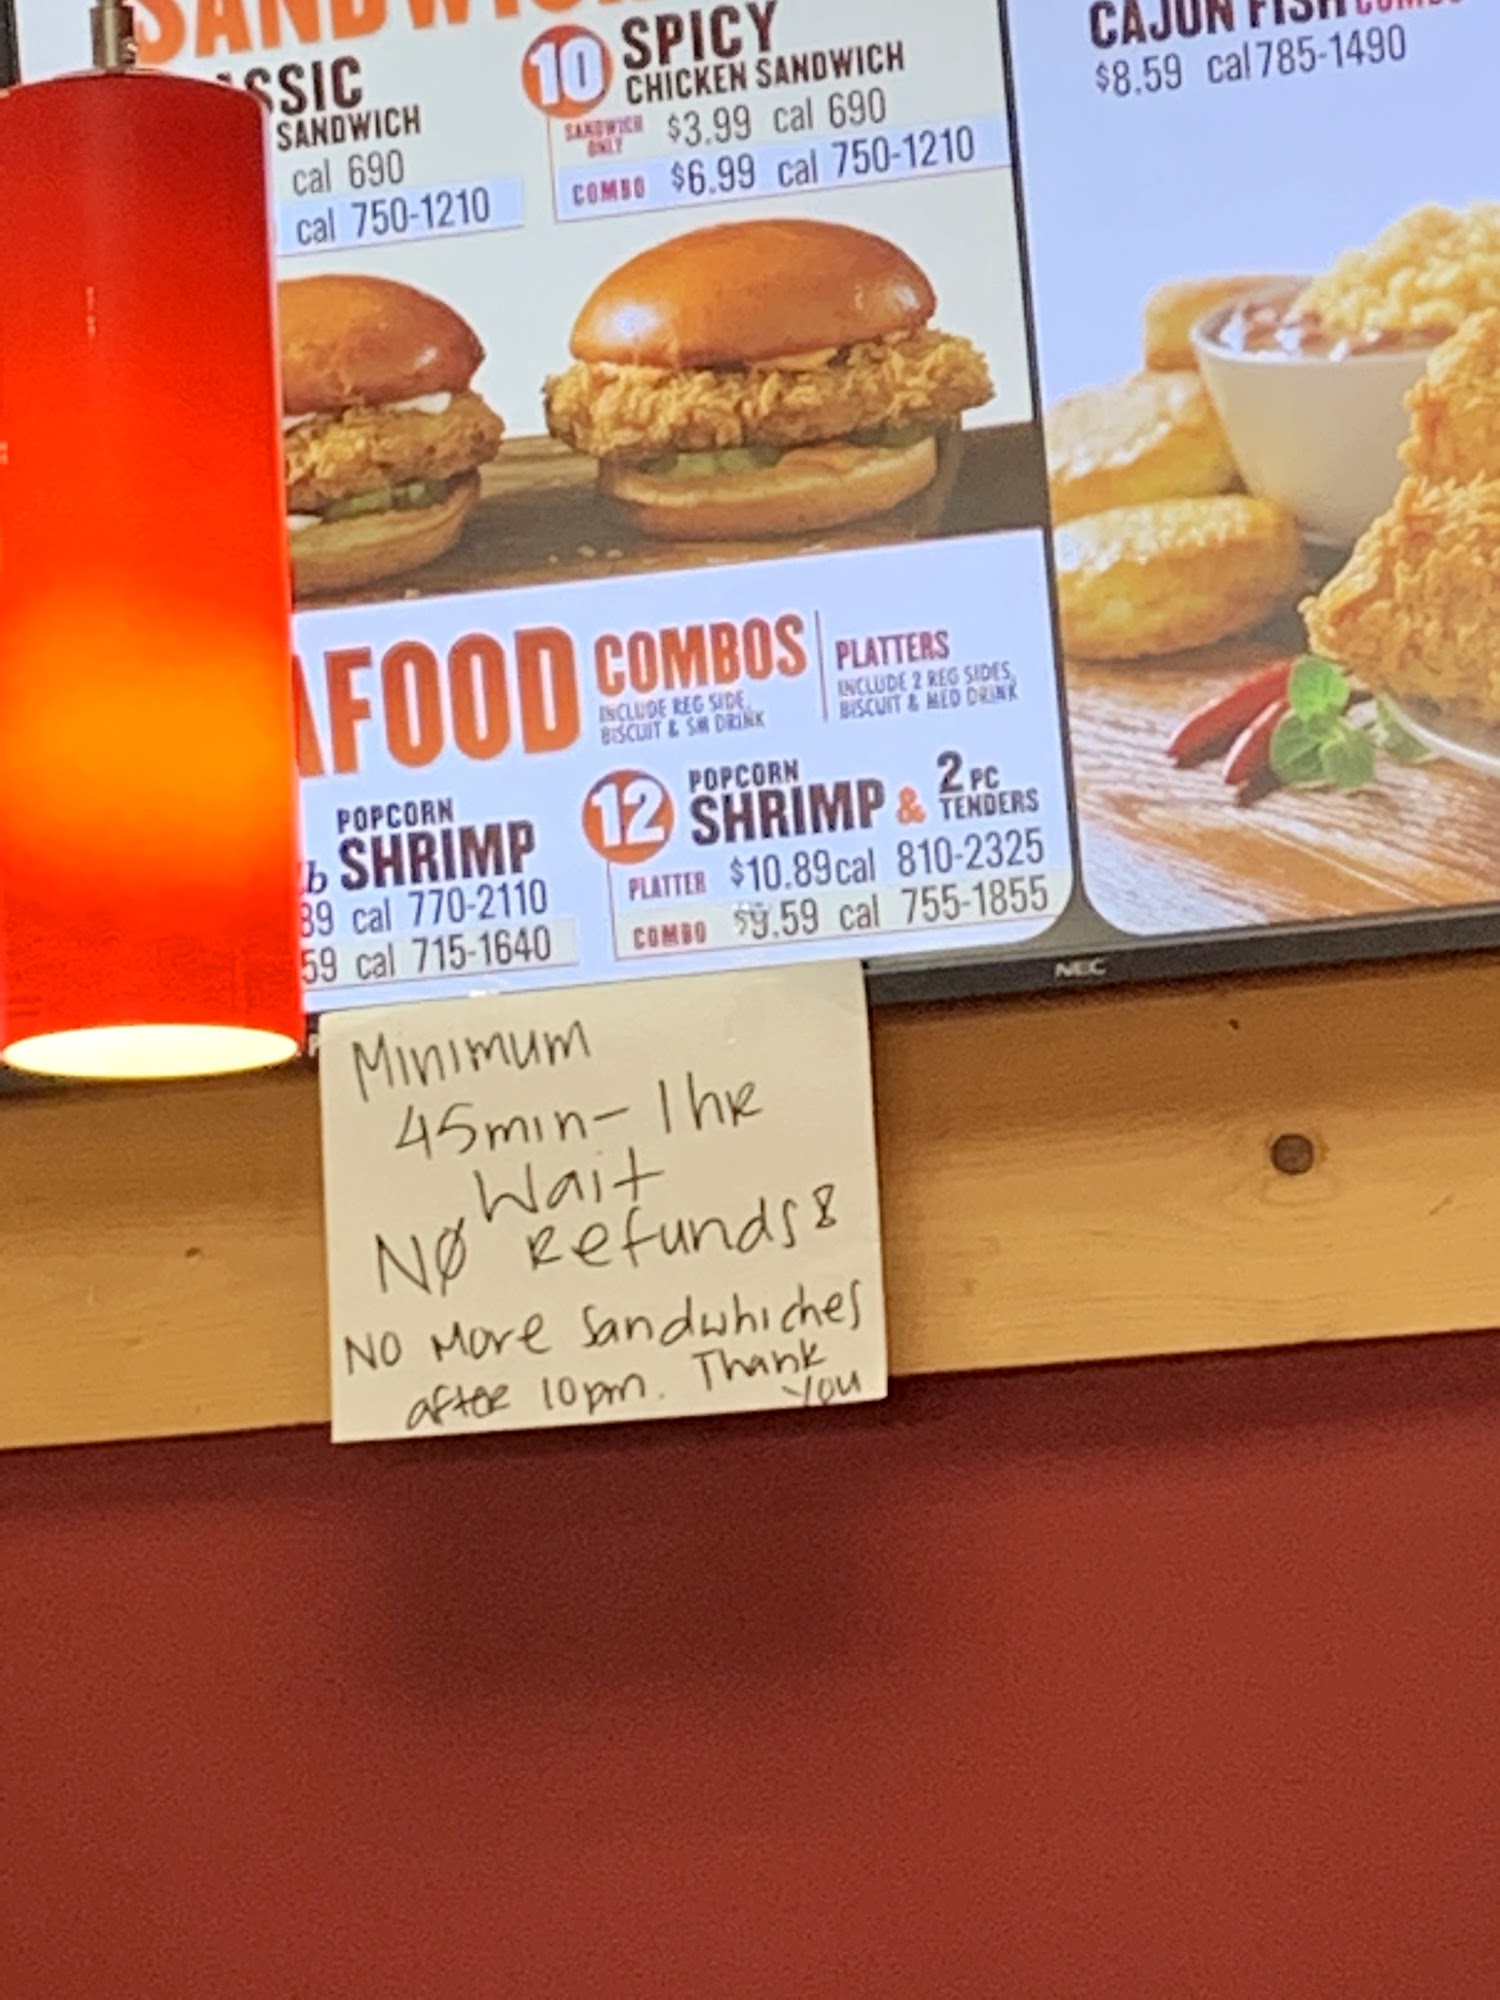 SANDWIC
ASSIC
SANDWICH
cal 690
cal 750-1210
10 SPICY
CHICKEN SANDWICH
SANDWICH ONLY $3.99 cal 690
COMBO $6.99 cal 750-1210
CAJUN FISH COMBO
$8.59 cal 785-1490
AFOOD COMBOS
INCLUDE REG SIDE,
BISCUIT & SM DRINK
PLATTERS
INCLUDE 2 REG SIDES,
BISCUIT & MED DRINK
POPCORN
lb SHRIMP
89 cal 770-2110
59 cal 715-1640
12 POPCORN
SHRIMP & 2 PC
TENDERS
PLATTER $10.89 cal 810-2325
COMBO $9.59 cal 755-1855
NEC
Minimum
45min - 1 hr
Wait
NØ Refunds &
NO More Sandwhiches
after 10pm. Thank
You